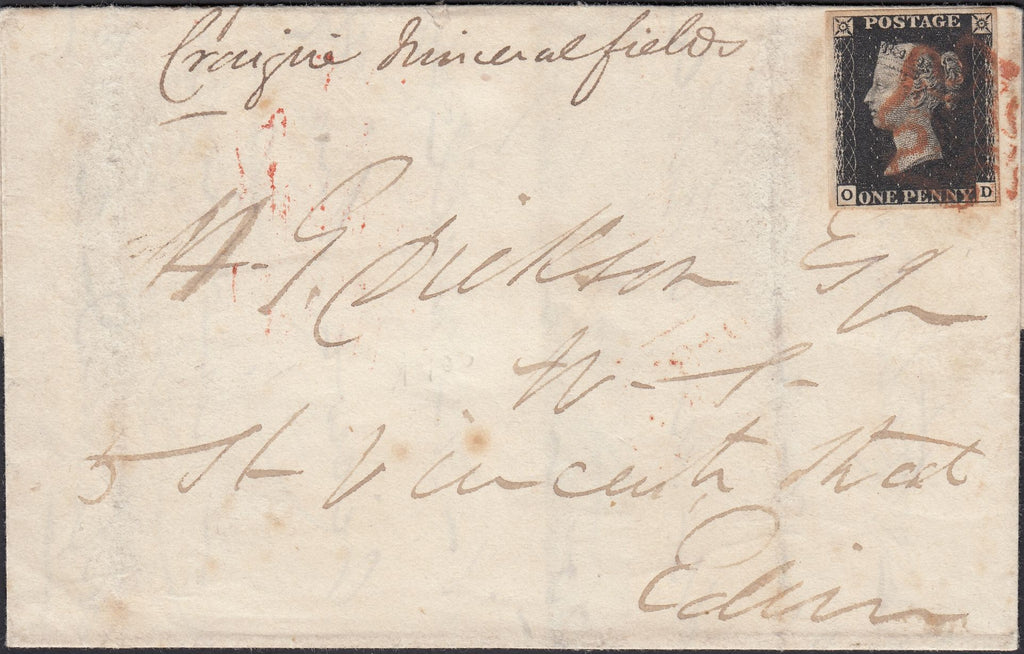 Craigie Mineralfields
POSTAGE
O ONE PENNY D
W. G. Dickson Esq
W. S.
5 St Vincent Street
Edinr